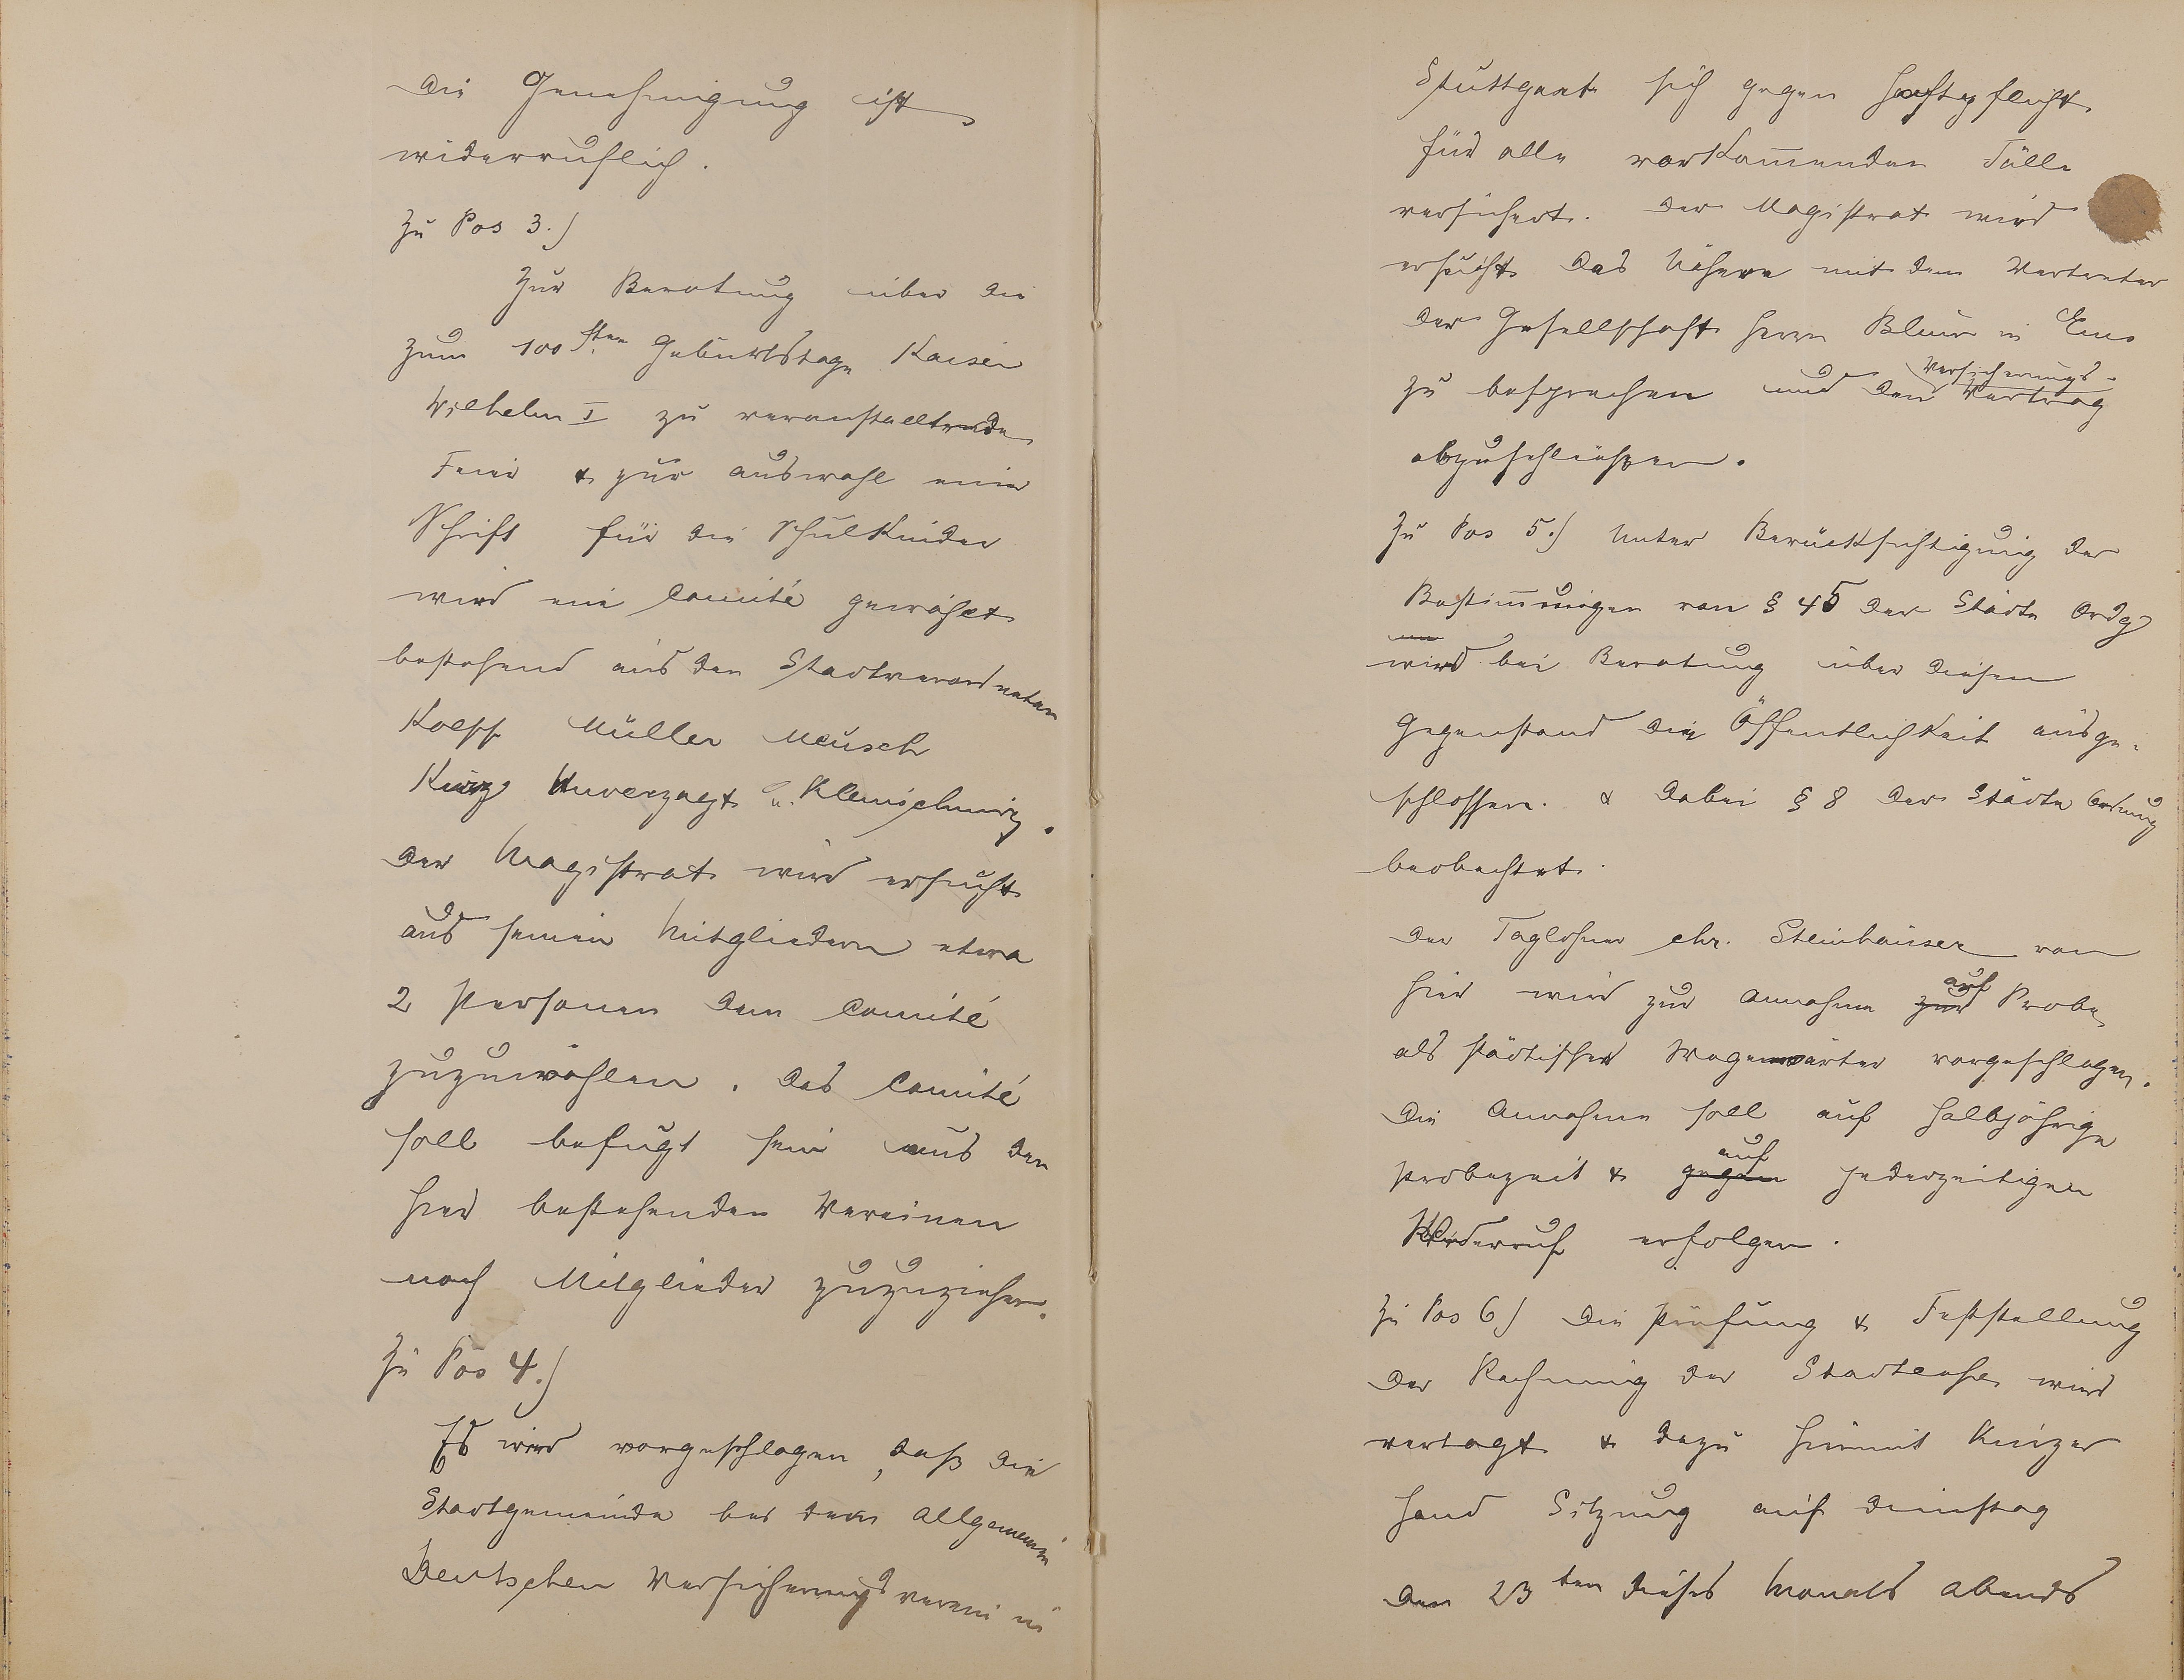 Die Genehmigung ist
widerruflich.
Zu Pos 3.)
Zur Beratung über die
zum 100sten Geburtstage Kaiser
Wilhelm I zu veranstalltende
Feier & zur auswahl einer
Schrift für die Schulkinder
wird ein Comité gewählt
bestehend aus den Stadtverordneten
Müller Meusch
Kurz Unverzagt u. Kleinschmidt.
Der Magistrat wird ersucht
aus seinen Mitgliedern etwa
2 Personen dem Comité
zuzuwählen. Das Comité
soll befugt sein aus den
hier bestehenden Vereinen
noch Mitglieder zuzuziehen.
Zu Pos 4.)
Es wird vorgeschlagen, daß die
Stadtgemeinde bei dem Allgemein
Deutschen Versicherungsverein in
Stuttgart sich gegen Haftpflicht
für alle vorkommenden Fälle
versichert. Der Magistrat wird
ersucht das Nähere mit dem Vertreter
der Gesellschaft Herrn Blum in Ems
zu besprechen und den Versicherungs-
Vertrag
abzuschließen.
Zu Pos 5.) Unter Berücksichtigung der
Bestimmungen von § 45 der Städte Ordg
wird bei Beratung über diesen
Gegenstand die Öffentlichkeit ausge-
schlossen. & dabei § 8 der Städte Ordnung
beobachtet.
Der Taglöhner Chr. Steinhäuser von
hier wird zur Annahme zur auf Probe
als städtischer Wagenwärter vorgeschlagen.
Die Annahme soll auf halbjährige
Probezeit & gegen auf jederzeitigen
Widerruf erfolgen.
Zu Pos 6) Die Prüfung & Feststellung
der Rechnung der Stadtcasse wird
vertagt & dazu hiermit kurzer
Hand Sitzung auf Dienstag
den 23ten dieses Monats Abends